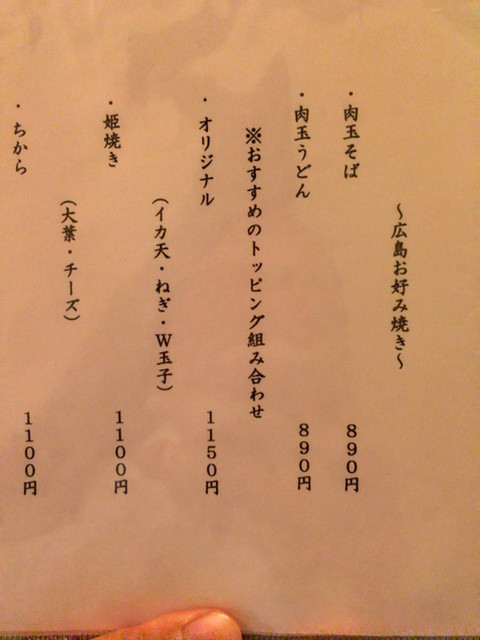 ～広島お好み焼き～
・肉玉そば 890円
・肉玉うどん 890円
※おすすめのトッピング組み合わせ
・オリジナル 1150円
(イカ天・ねぎ・W玉子)
・姫焼き 1100円
(大葉・チーズ)
・ちから 1100円